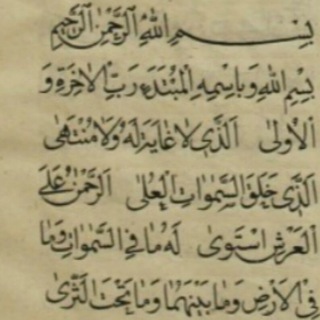 بِسْمِ اللهِ الرَّحْمٰنِ الرَّحِيْمِ
بِسْمِ اللهِ وَبِاسْمِهِ الْمُبْتَدَءِ رَبِّ الْاٰخِرَةِ وَ
الْاُوْلٰى الَّذِيْ لَا غَايَةَ لَهُ وَلَا مُنْتَهٰى
الَّذِيْ خَلَقَ السَّمٰوَاتِ الْعُلٰى الرَّحْمٰنُ عَلَى
الْعَرْشِ اسْتَوٰى لَهُ مَا فِي السَّمٰوَاتِ وَمَا
فِي الْاَرْضِ وَمَا بَيْنَهُمَا وَمَا تَحْتَ الثَّرٰى